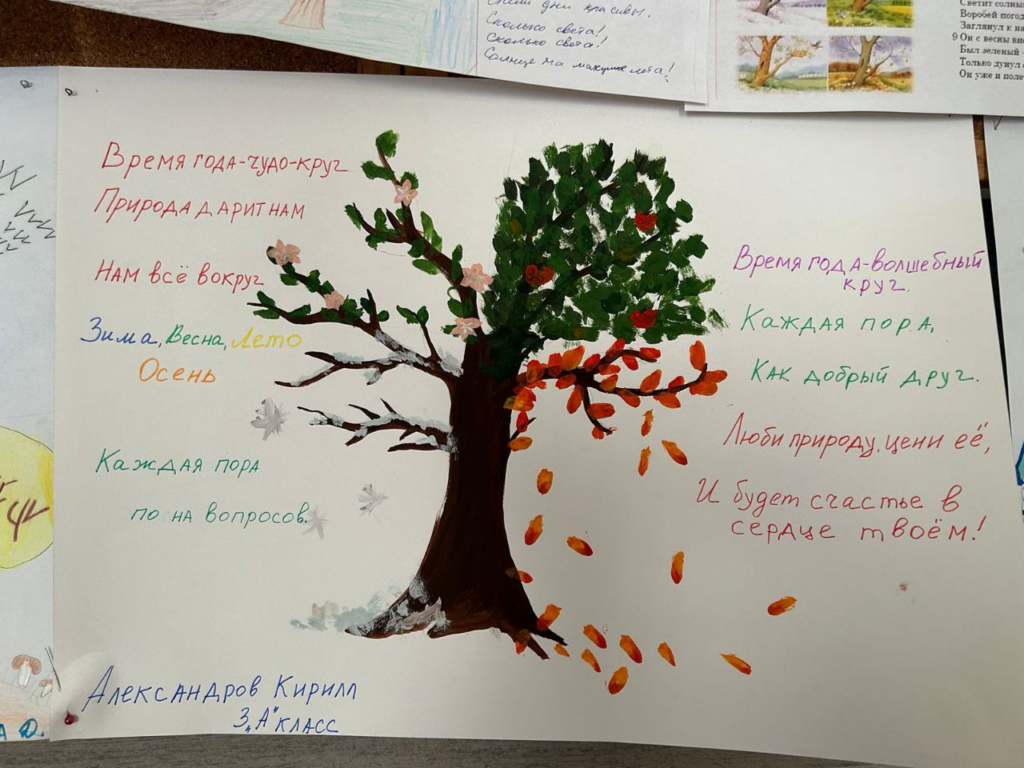 Сколько света!
Сколько света!
Солнце на макушке лета!
Светит солны
Воробей погод
Заглянул к на
9 Он с весны вн
Был зеленый
Только дунул с
Он уже и поле
Время года-чудо-круг
Природа дарит нам
Нам всё вокруг
Зима, Весна, Лето
Осень
Каждая пора
по на вопросов.
Время года-волшебный
круг.
Каждая пора,
Как добрый друг.
Люби природу, цени её,
И будет счастье в
сердце твоём!
Александров Кирилл
3 „А" класс
А Ю.